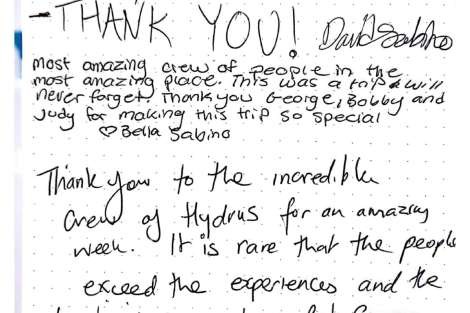 - THANK YOU! David Sabino
most amazing crew of people in the
most amazing place. This was a trip I will
never forget. Thank you George, Bobby and
Judy for making this trip so special
♡ Bella Sabino
Thank you to the incredible
crew of Hydrus for an amazing
week. It is rare that the people
exceed the experiences and the